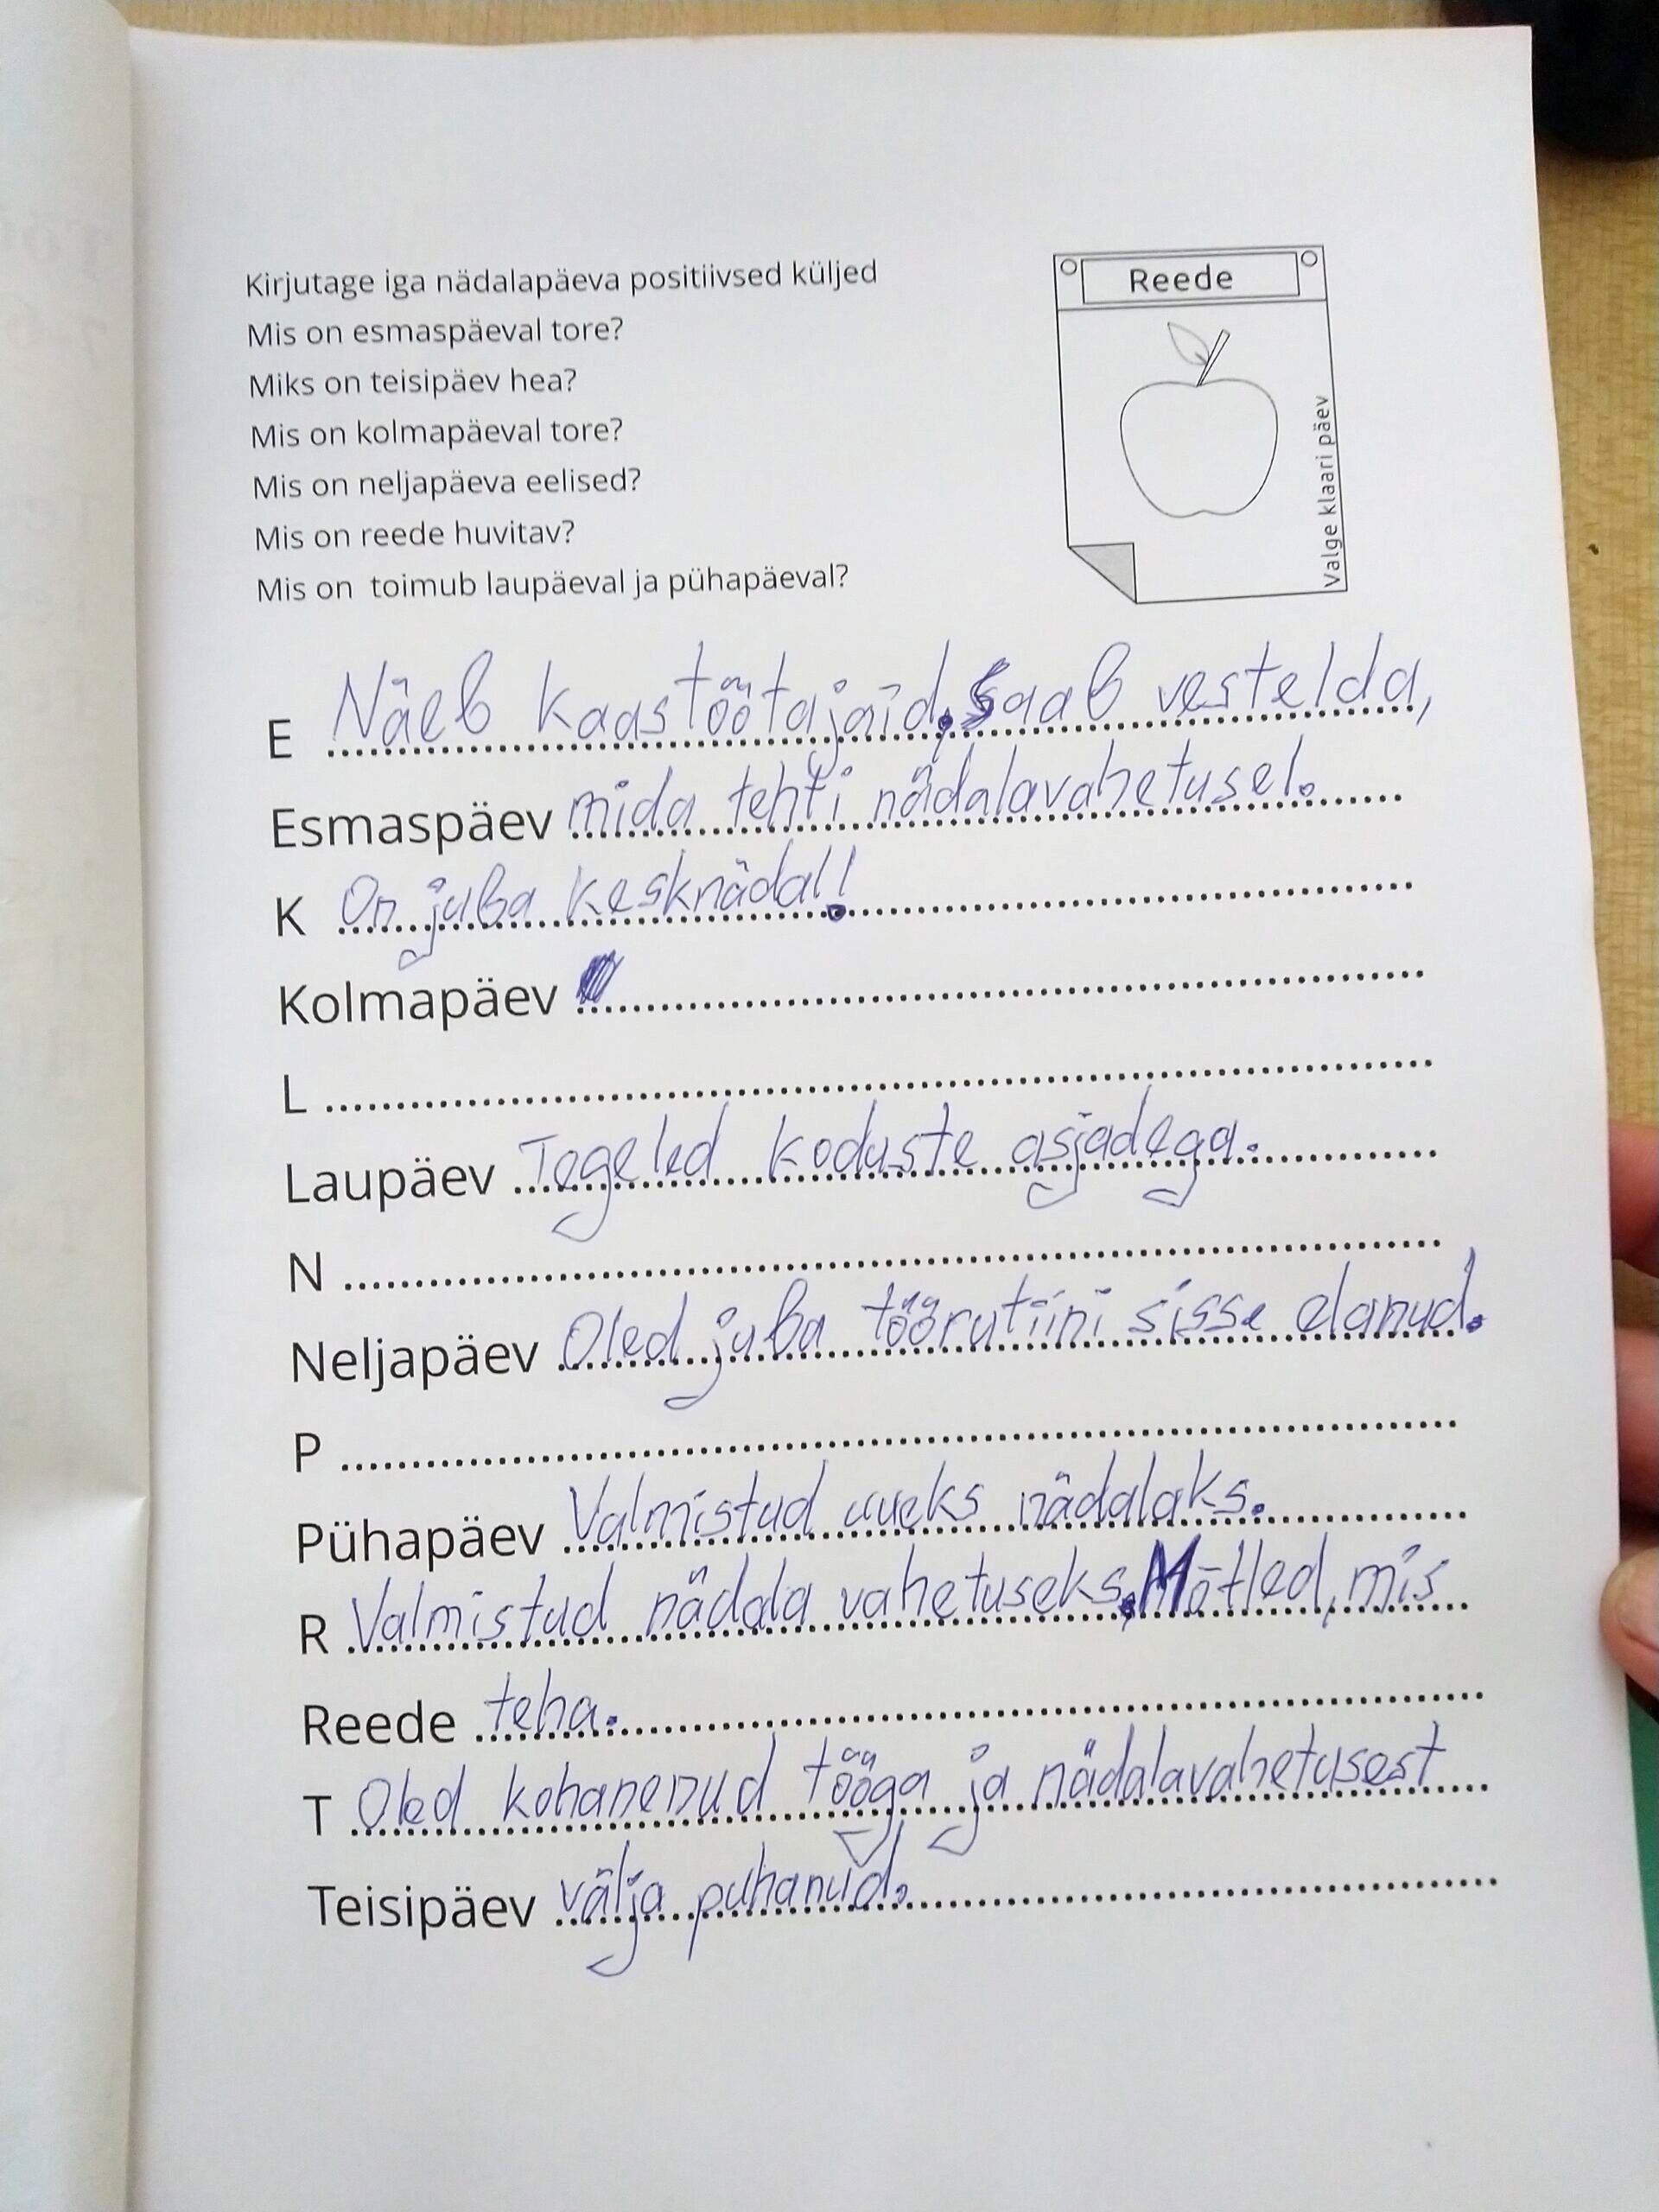 Kirjutage iga nädalapäeva positiivsed küljed
Mis on esmaspäeval tore?
Miks on teisipäev hea?
Mis on kolmapäeval tore?
Mis on neljapäeva eelised?
Mis on reede huvitav?
Mis on toimub laupäeval ja pühapäeval?
Reede
Valge klaari päev
E Näeb kaastöötajaid, saab vestelda,
Esmaspäev mida tehti nädalavahetusel.
K On juba kesknädal!
Kolmapäev
L
Laupäev Tegeled koduste asjadega.
N
Neljapäev Oled juba töörutiini sisse elanud.
P
Pühapäev Valmistud uueks nädalaks.
R Valmistud nädala vahetuseks, Mõtled, mis
Reede teha.
T Oled kohanenud tööga ja nädalavahetusest
Teisipäev välja puhanud.